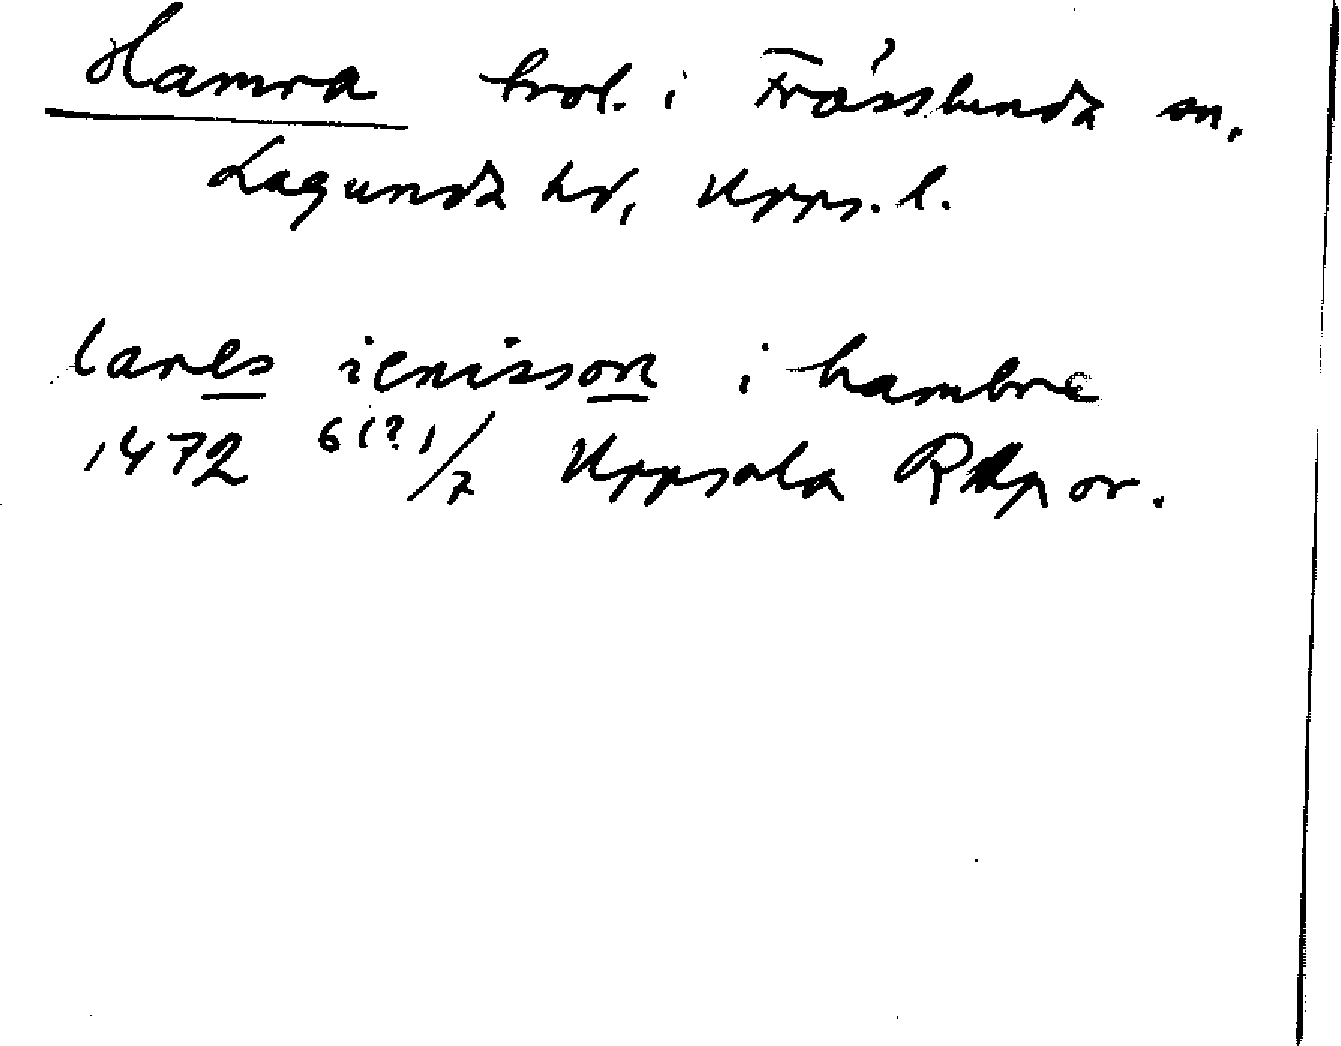 Hamra trol. i Frösslunda sn,
Lagunda hd, Upps. l.
lares ienisson i hambre
1472 6(?)/7 Uppsala RApor.